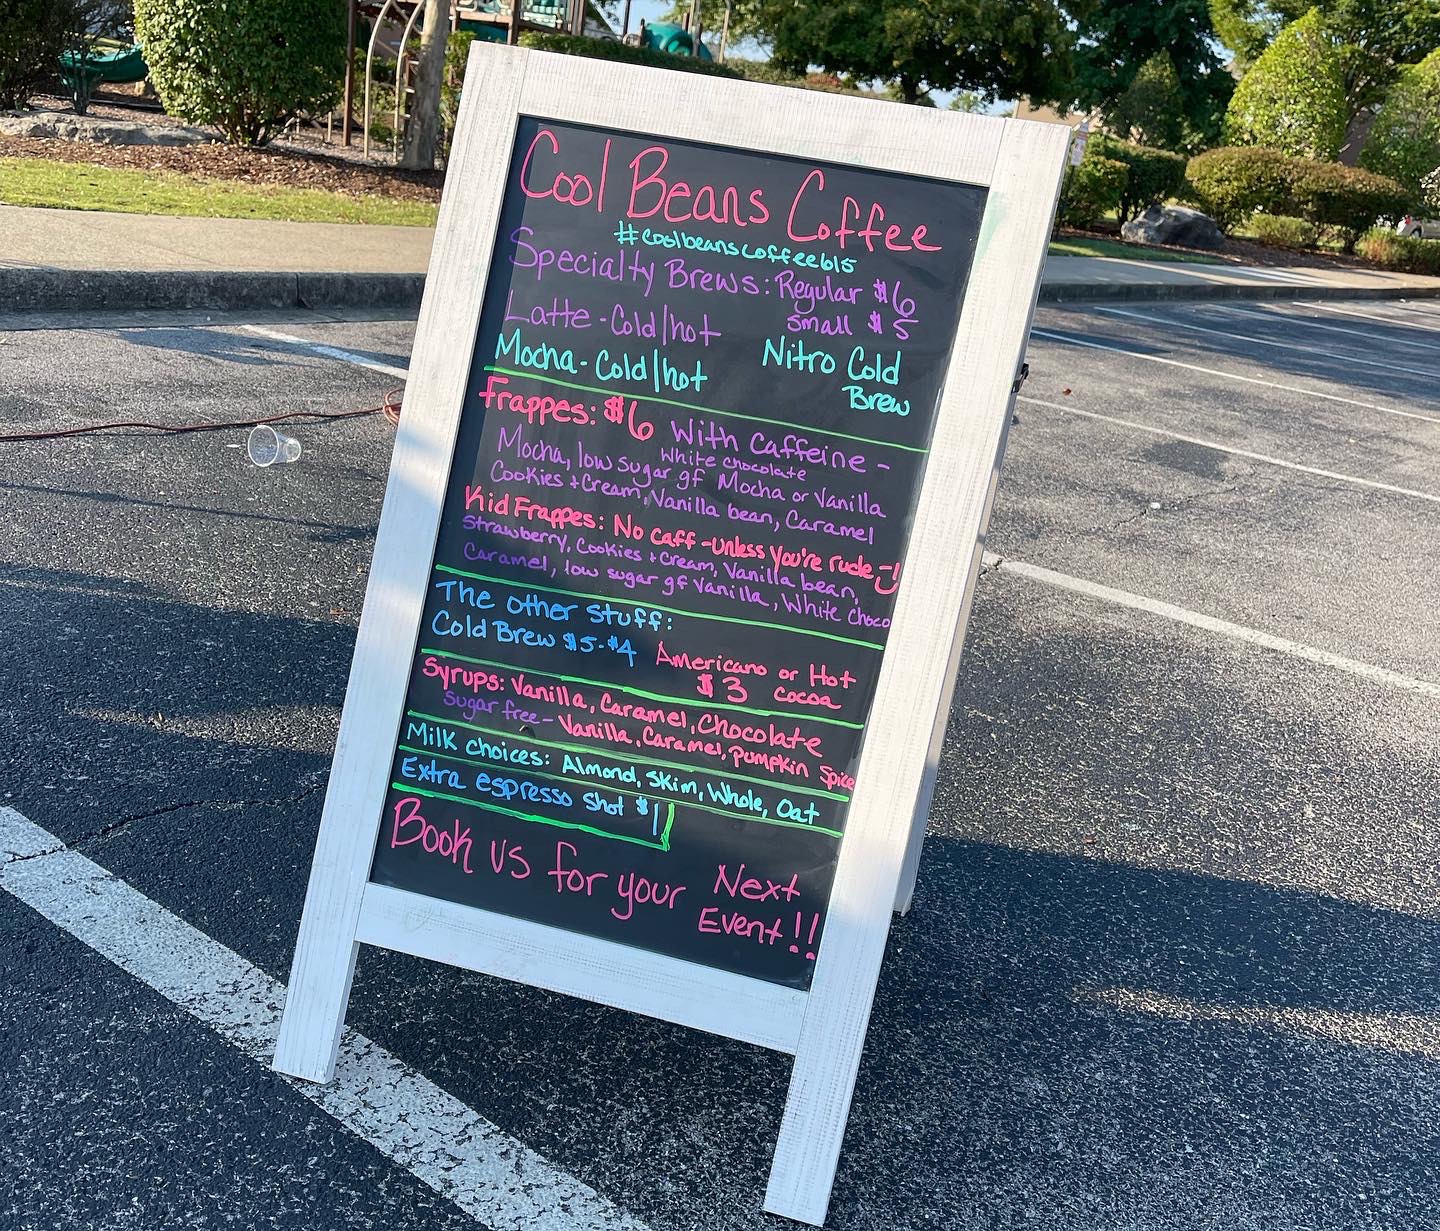 Cool Beans Coffee
#coolbeanscoffee615
Specialty Brews: Regular $6
small $5
Latte - Cold/hot
Mocha - Cold/hot
Nitro Cold
Brew
Frappes: $6 With caffeine -
White chocolate
Mocha, low sugar gf Mocha or Vanilla
Cookies + Cream, Vanilla bean, Caramel
Kid Frappes: No caff - unless you're rude :)
Strawberry, Cookies + Cream, Vanilla bean,
Caramel, low sugar gf Vanilla, White Choco
The other Stuff:
Cold Brew $5-$4
Americano or Hot
$3 cocoa
Syrups: Vanilla, Caramel, Chocolate
sugar free - Vanilla, Caramel, Pumpkin Spice
Milk choices: Almond, Skim, Whole, Oat
Extra espresso shot $1
Book us for your Next
Event!!